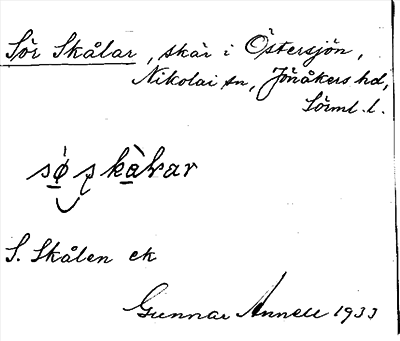 Sör Skålar, skär i Östersjön,
Nikolai sn, Jönåkers hd,
Sörml. l.
sø̀ skàlar
S. Skålen ek
Gunnar Annell 1933